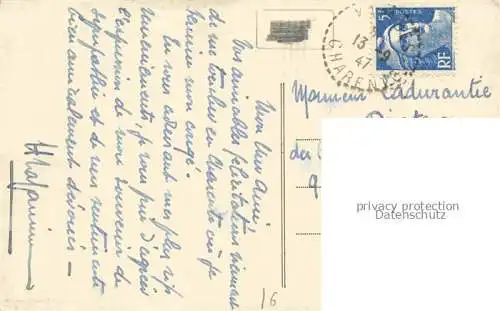 Mon cher ami,
Vos aimables félicitations viennent
de me toucher en Charente où je
termine mon congé.
En vous adressant mes plus vifs
remerciements, je vous prie d'agréer
l'expression de mon souvenir
sympathique et de mes sentiments
bien amicalement dévoués —
5F POSTES
RF
13-9
47
CHARENTE
Monsieur Ladurantie
Di
des
privacy protection
Datenschutz
16